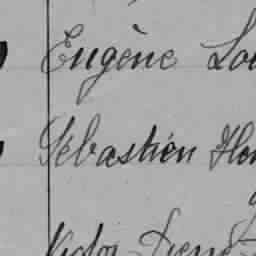 Eugène Lou
Sébastien Hen
Victor Pierre